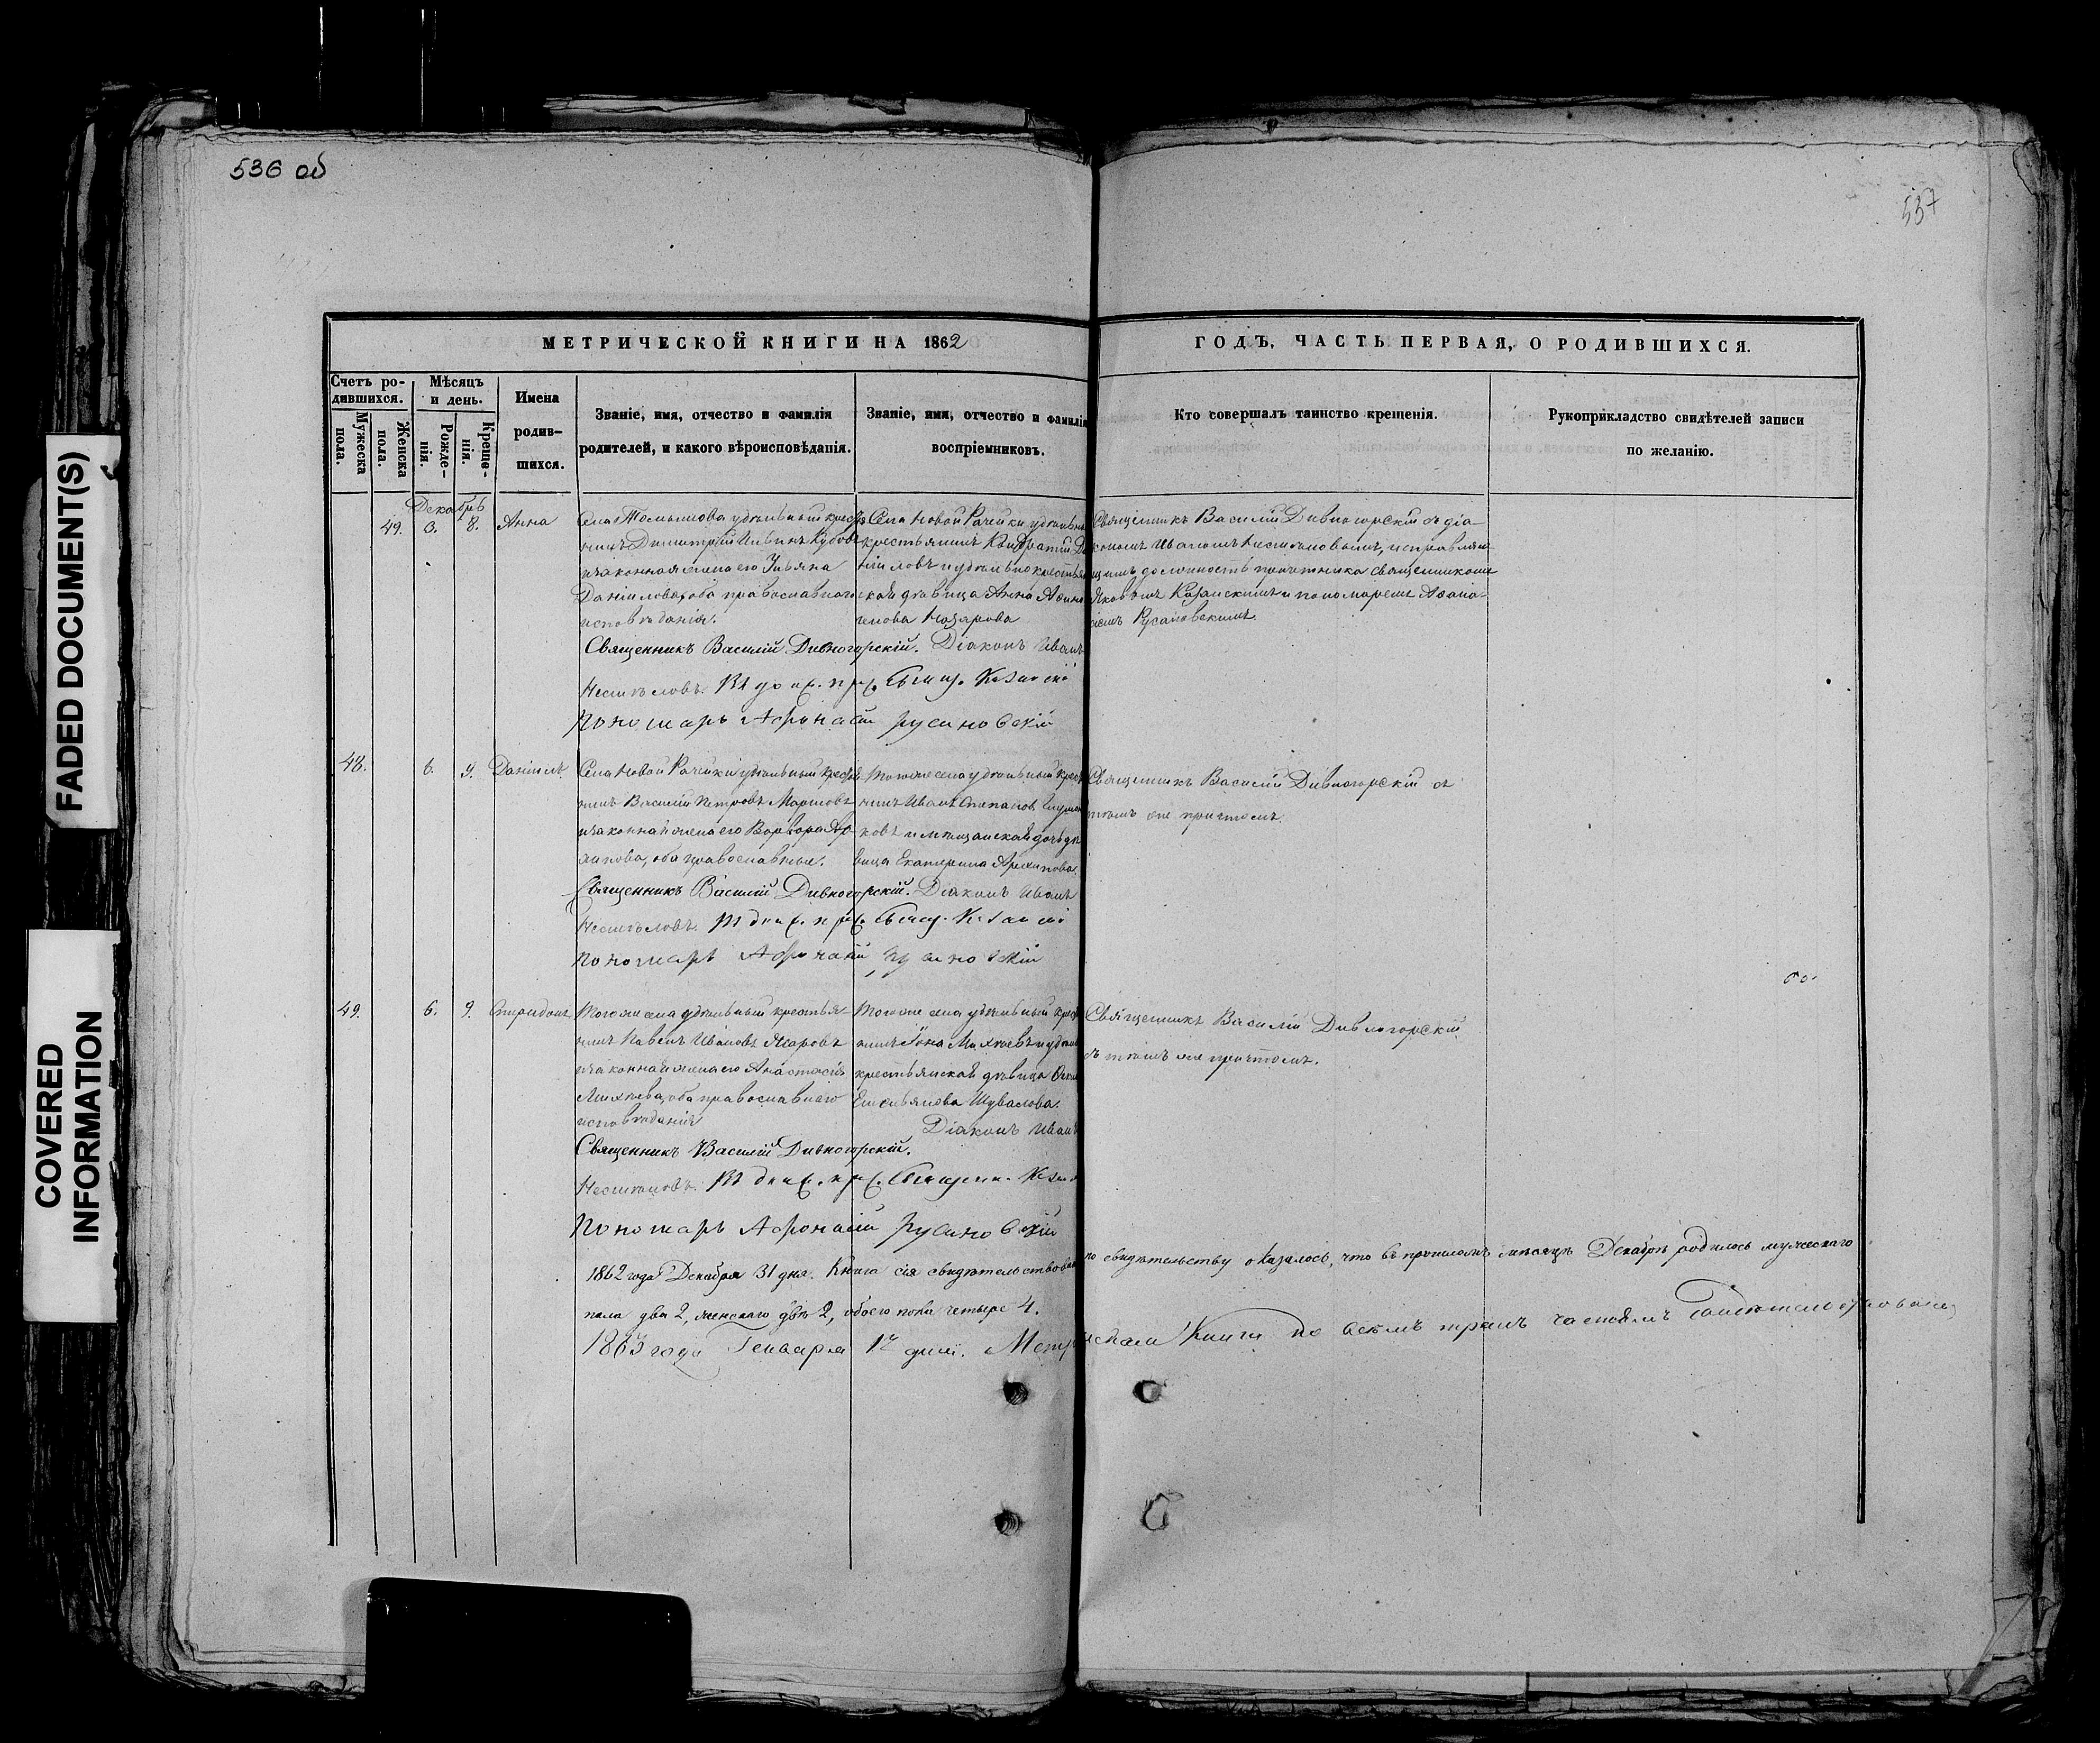 FADED DOCUMENT(S)
COVERED
INFORMATION
536 об
537
МЕТРИЧЕСКОЙ КНИГИ НА 1862
ГОДЪ, ЧАСТЬ ПЕРВАЯ, О РОДИВШИХСЯ.
Счетъ ро-
дившихся.
Мужеска
пола.
Женска
пола.
Мѣсяцъ
и день.
Рожде-
нія.
Креще-
нія.
Имена
родив-
шихся.
Званіе, имя, отчество и фамилія
родителей, и какого вѣроисповѣданія.
Званіе, имя, отчество и фамилія
воспріемниковъ.
Кто совершалъ таинство крещенія.
Рукоприкладство свидѣтелей записи
по желанію.
Декабрь
49. 3. 8. Анна
Села удѣльный крестья
нинъ Димитрій Ильинъ
и законная жена его Ульяна
Данилова, оба православнаго
исповѣданія.
Села Новой Рачейки удѣльны
крестьянинъ Кондратій Да
ниловъ и удѣльно крестьян
ская дѣвица Анна
Назарова
Священникъ Василій Дивногорскій съ діа
кономъ Иваномъ Несмѣловымъ, исправляю
щимъ должность причетника священником
Яковомъ Казанскимъ и пономаремъ Аѳана
сіемъ Русановскимъ.
Священникъ Василій Дивногорскій. Діаконъ Иванъ
Несмѣловъ.
Пономарь Афонасій Русановскій
48. 6. 9. Даніилъ
Села Новой Рачейки удѣльный крестья
нинъ Василій Петровъ Мартовъ
и законная жена его Варвара Ар
хипова, оба православные.
Тогоже села удѣльный крест
нинъ Иванъ Степановъ
ковъ и мѣщанская дочь дѣ
вица Екатерина Архипова.
Священникъ Василій Дивногорскій съ
тѣмъ же причтомъ.
Священникъ Василій Дивногорскій. Діаконъ Иванъ
Несмѣловъ.
Пономарь Афонасій Русановскій
49. 6. 9. Спиридонъ
Тогоже села удѣльный крестья-
нинъ Павелъ Ивановъ
и законная жена его Анастасія
Михѣева, оба православнаго
исповѣданія
Тогоже села удѣльный крест
нинъ Іона Михѣевъ и удѣльно
крестьянская дѣвица
Емельянова Шувалова.
Священникъ Василій Дивногорскій
съ тѣмъ же причтомъ.
Діаконъ Иванъ
Священникъ Василій Дивногорскій.
Несмѣловъ.
Пономарь Афонасій Русановскій
1862 года Декабря 31 дня. Книга сія свидѣтельствована по свидѣтельству оказалось, что въ прошломъ мѣсяцѣ Декабрѣ родилось мужескаго
пола два 2, женскаго двѣ 2, обоего пола четыре 4.
1863 года Генваря дня. Метрическая Книга по всѣмъ тремъ частямъ свидѣтельствована